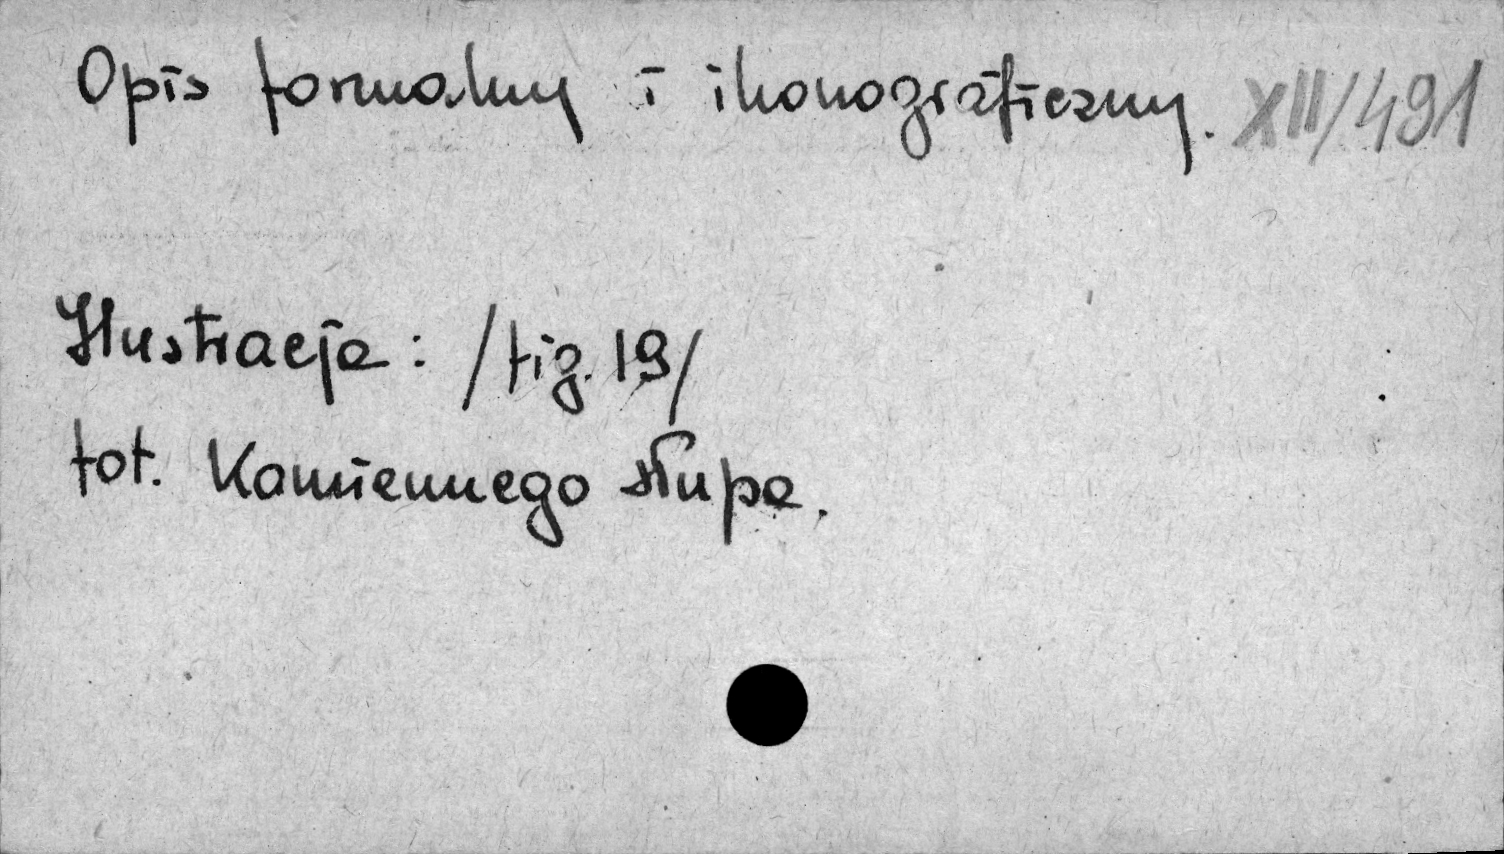 Opis formalny i ikonograficzny. XII/491
Ilustracja: /fig. 19/
fot. Kamiennego słupa.